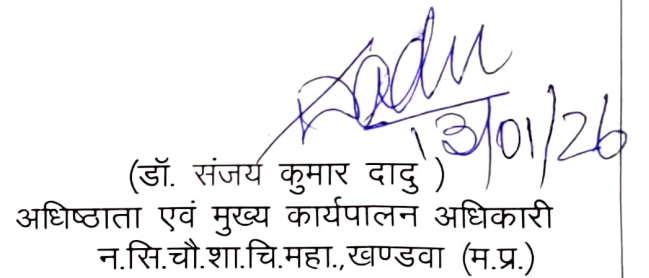 Dadu
13/01/26
(डॉ. संजय कुमार दादु )
अधिष्ठाता एवं मुख्य कार्यपालन अधिकारी
न.सि.चौ.शा.चि.महा.,खण्डवा (म.प्र.)